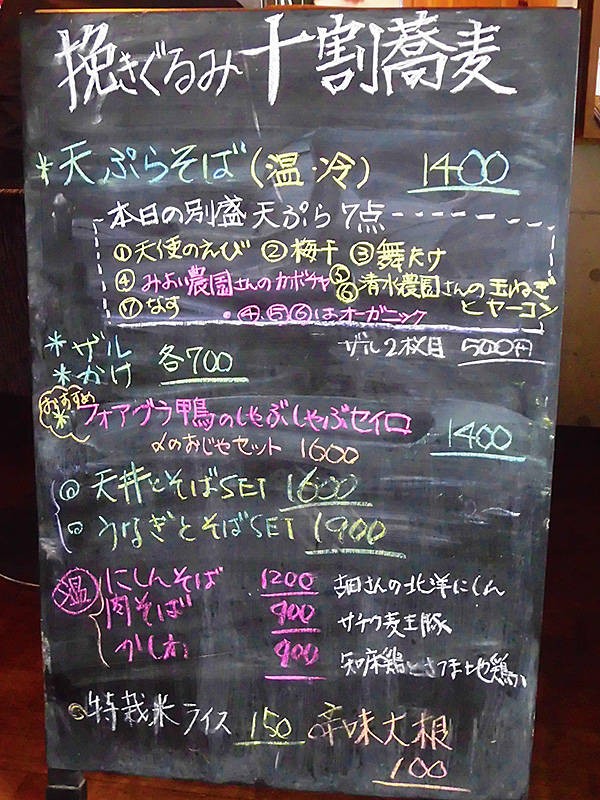 挽きぐるみ十割蕎麦
*天ぷらそば(温・冷) 1400
本日の別盛 天ぷら 7点
①天使のえび ②梅干 ③舞たけ
④みよい農園さんのカボチャ ⑤⑥清水農園さんの玉ねぎとヤーコン
⑦なす ・④⑤⑥はオーガニック
*ザル
*かけ 各700
ザル2枚目 500円
おすすめ
*フォアグラ鴨のしゃぶしゃぶセイロ 1400
〆のおじやセット 1600
天丼とそばSET 1600
うなぎとそばSET 1900
温 にしんそば 1200 胡田さんの北洋にしん
肉そば 900 サチク麦王豚
かしわ 900 知床鶏とさつま地鶏
特栽米ライス 150 辛味大根 100